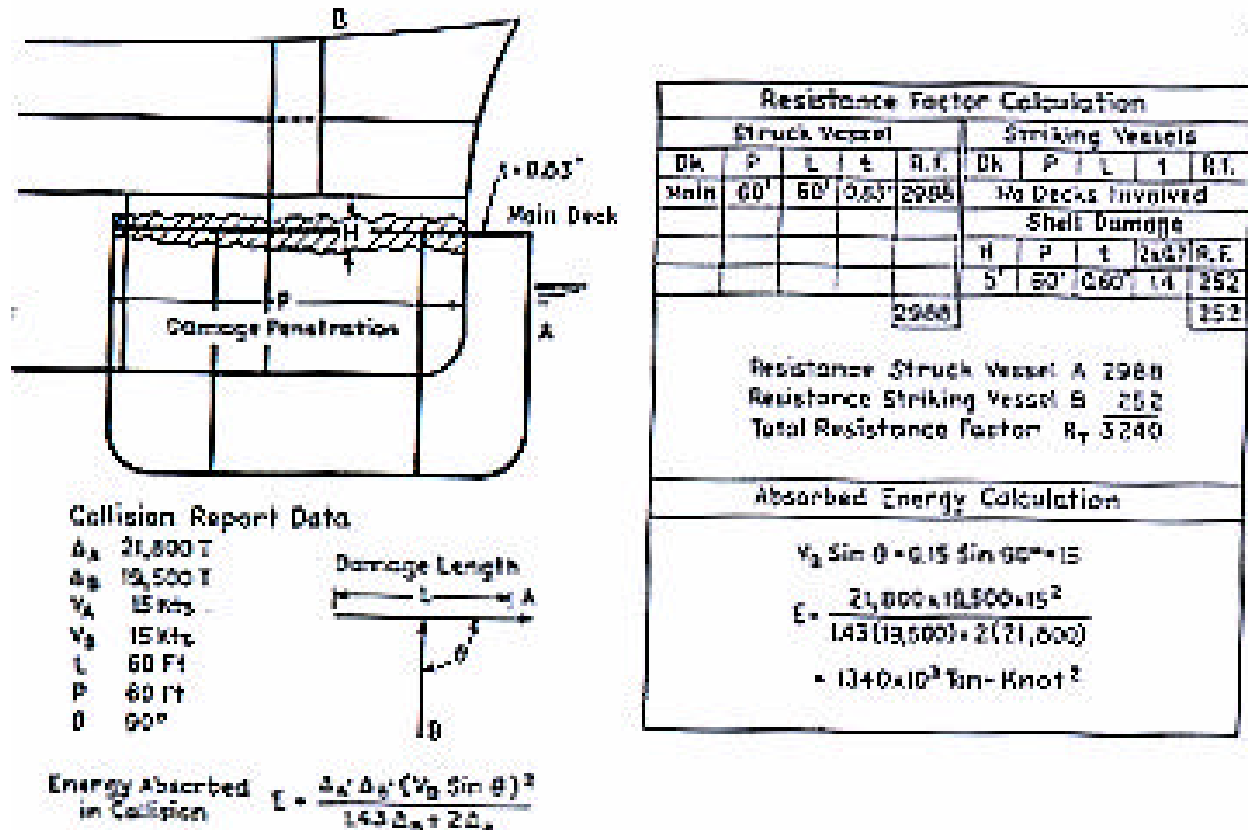 B
t = 0.63"
Main Deck
H
P
Damage Penetration
A
Collision Report Data
ΔA 21,800 T
ΔB 19,500 T
VA 15 Kts
VB 15 Kts
L 60 Ft
P 60 Ft
θ 90°
Damage Length
L A
θ
B
Energy Absorbed in Collision E = ΔA·ΔB·(VB Sin θ)² / 1.43 ΔB + 2 ΔA
Resistance Factor Calculation
Struck Vessel Striking Vessels
Dk P L t R.F. Dk P L t R.F.
Main 60' 60' 0.83" 2988 No Decks Involved
Shell Damage
H P t R.F.
5' 60' 0.60" 1.4 252
2988 252
Resistance Struck Vessel A 2988
Resistance Striking Vessel B 252
Total Resistance Factor RT 3240
Absorbed Energy Calculation
VB Sin θ = 15 Sin 90° = 15
E = 21,800 x 19,500 x 15² / 1.43 (19,500) + 2 (21,800)
= 1340 x 10³ Ton-Knot²